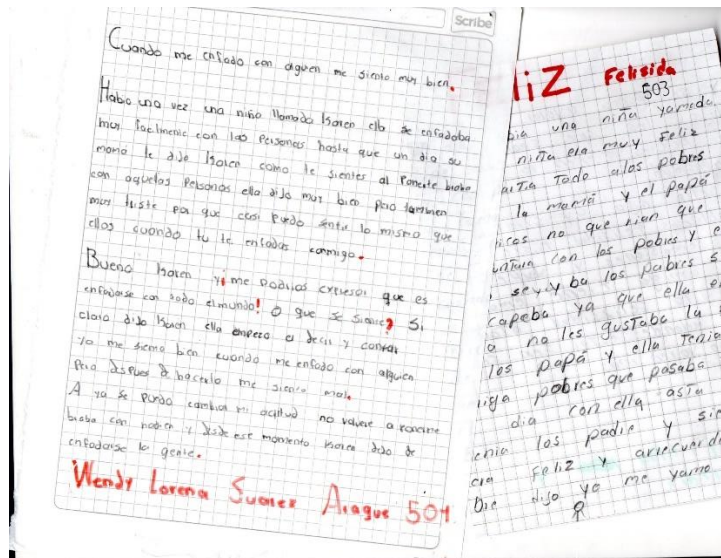 Scribe
Cuando me enfado con alguien me siento muy bien.
Habia una vez una niña llamada Karen ella se enfadaba
muy facilmente con las personas hasta que un dia su
mamá le dijo Karen como te sientes al ponerte braba
con aquellas personas ella dijo muy bien pero tambien
muy triste por que casi puedo sentir lo mismo que
ellos cuando tu te enfadas conmigo.
Bueno Karen y me podrias expresar que es
enfadarse con todo el mundo! O que se siente? Si
claro dijo Karen ella empezo a decir y contar
yo me siento bien cuando me enfado con alguien
pero despues de hacerlo me siento mal.
A ya se puedo cambiar mi actitud no volvere a ponerme
braba con nadien y desde ese momento Karen dejo de
enfadarse la gente.
Wendy Lorena Suarez Araque 501
iz Felisida
503
bia una niña yamada
niña era muy Feliz
Todo alos pobres
la mamá y el papá
icos no que rian que
con los pobres y e
se y ba los pobres s
capeba ya que ella e
a no les gusTaba la
los papá y ella Tenia
pobres que pasaba
dia con ella asTa
enia los padre y sie
cra feliz y
Die dijo yo me yamo